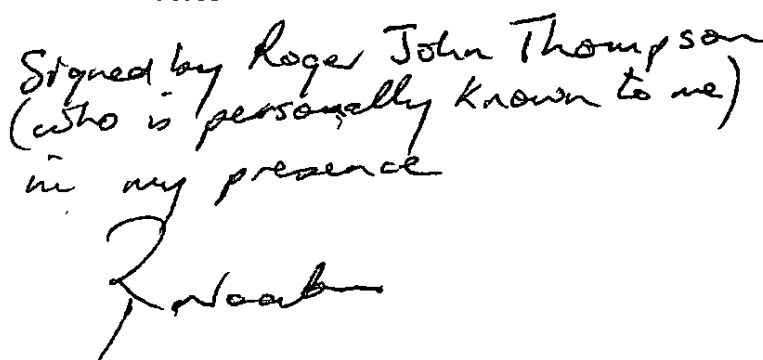 Signed by Roger John Thompson
(who is personally known to me)
in my presence